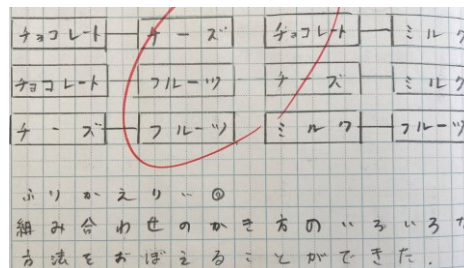 チョコレート チーズ チョコレート ミルク
チョコレート フルーツ チーズ ミルク
チーズ フルーツ ミルク フルーツ
ふりかえり…◎
組み合わせのかき方のいろいろな
方法をおぼえることができた.